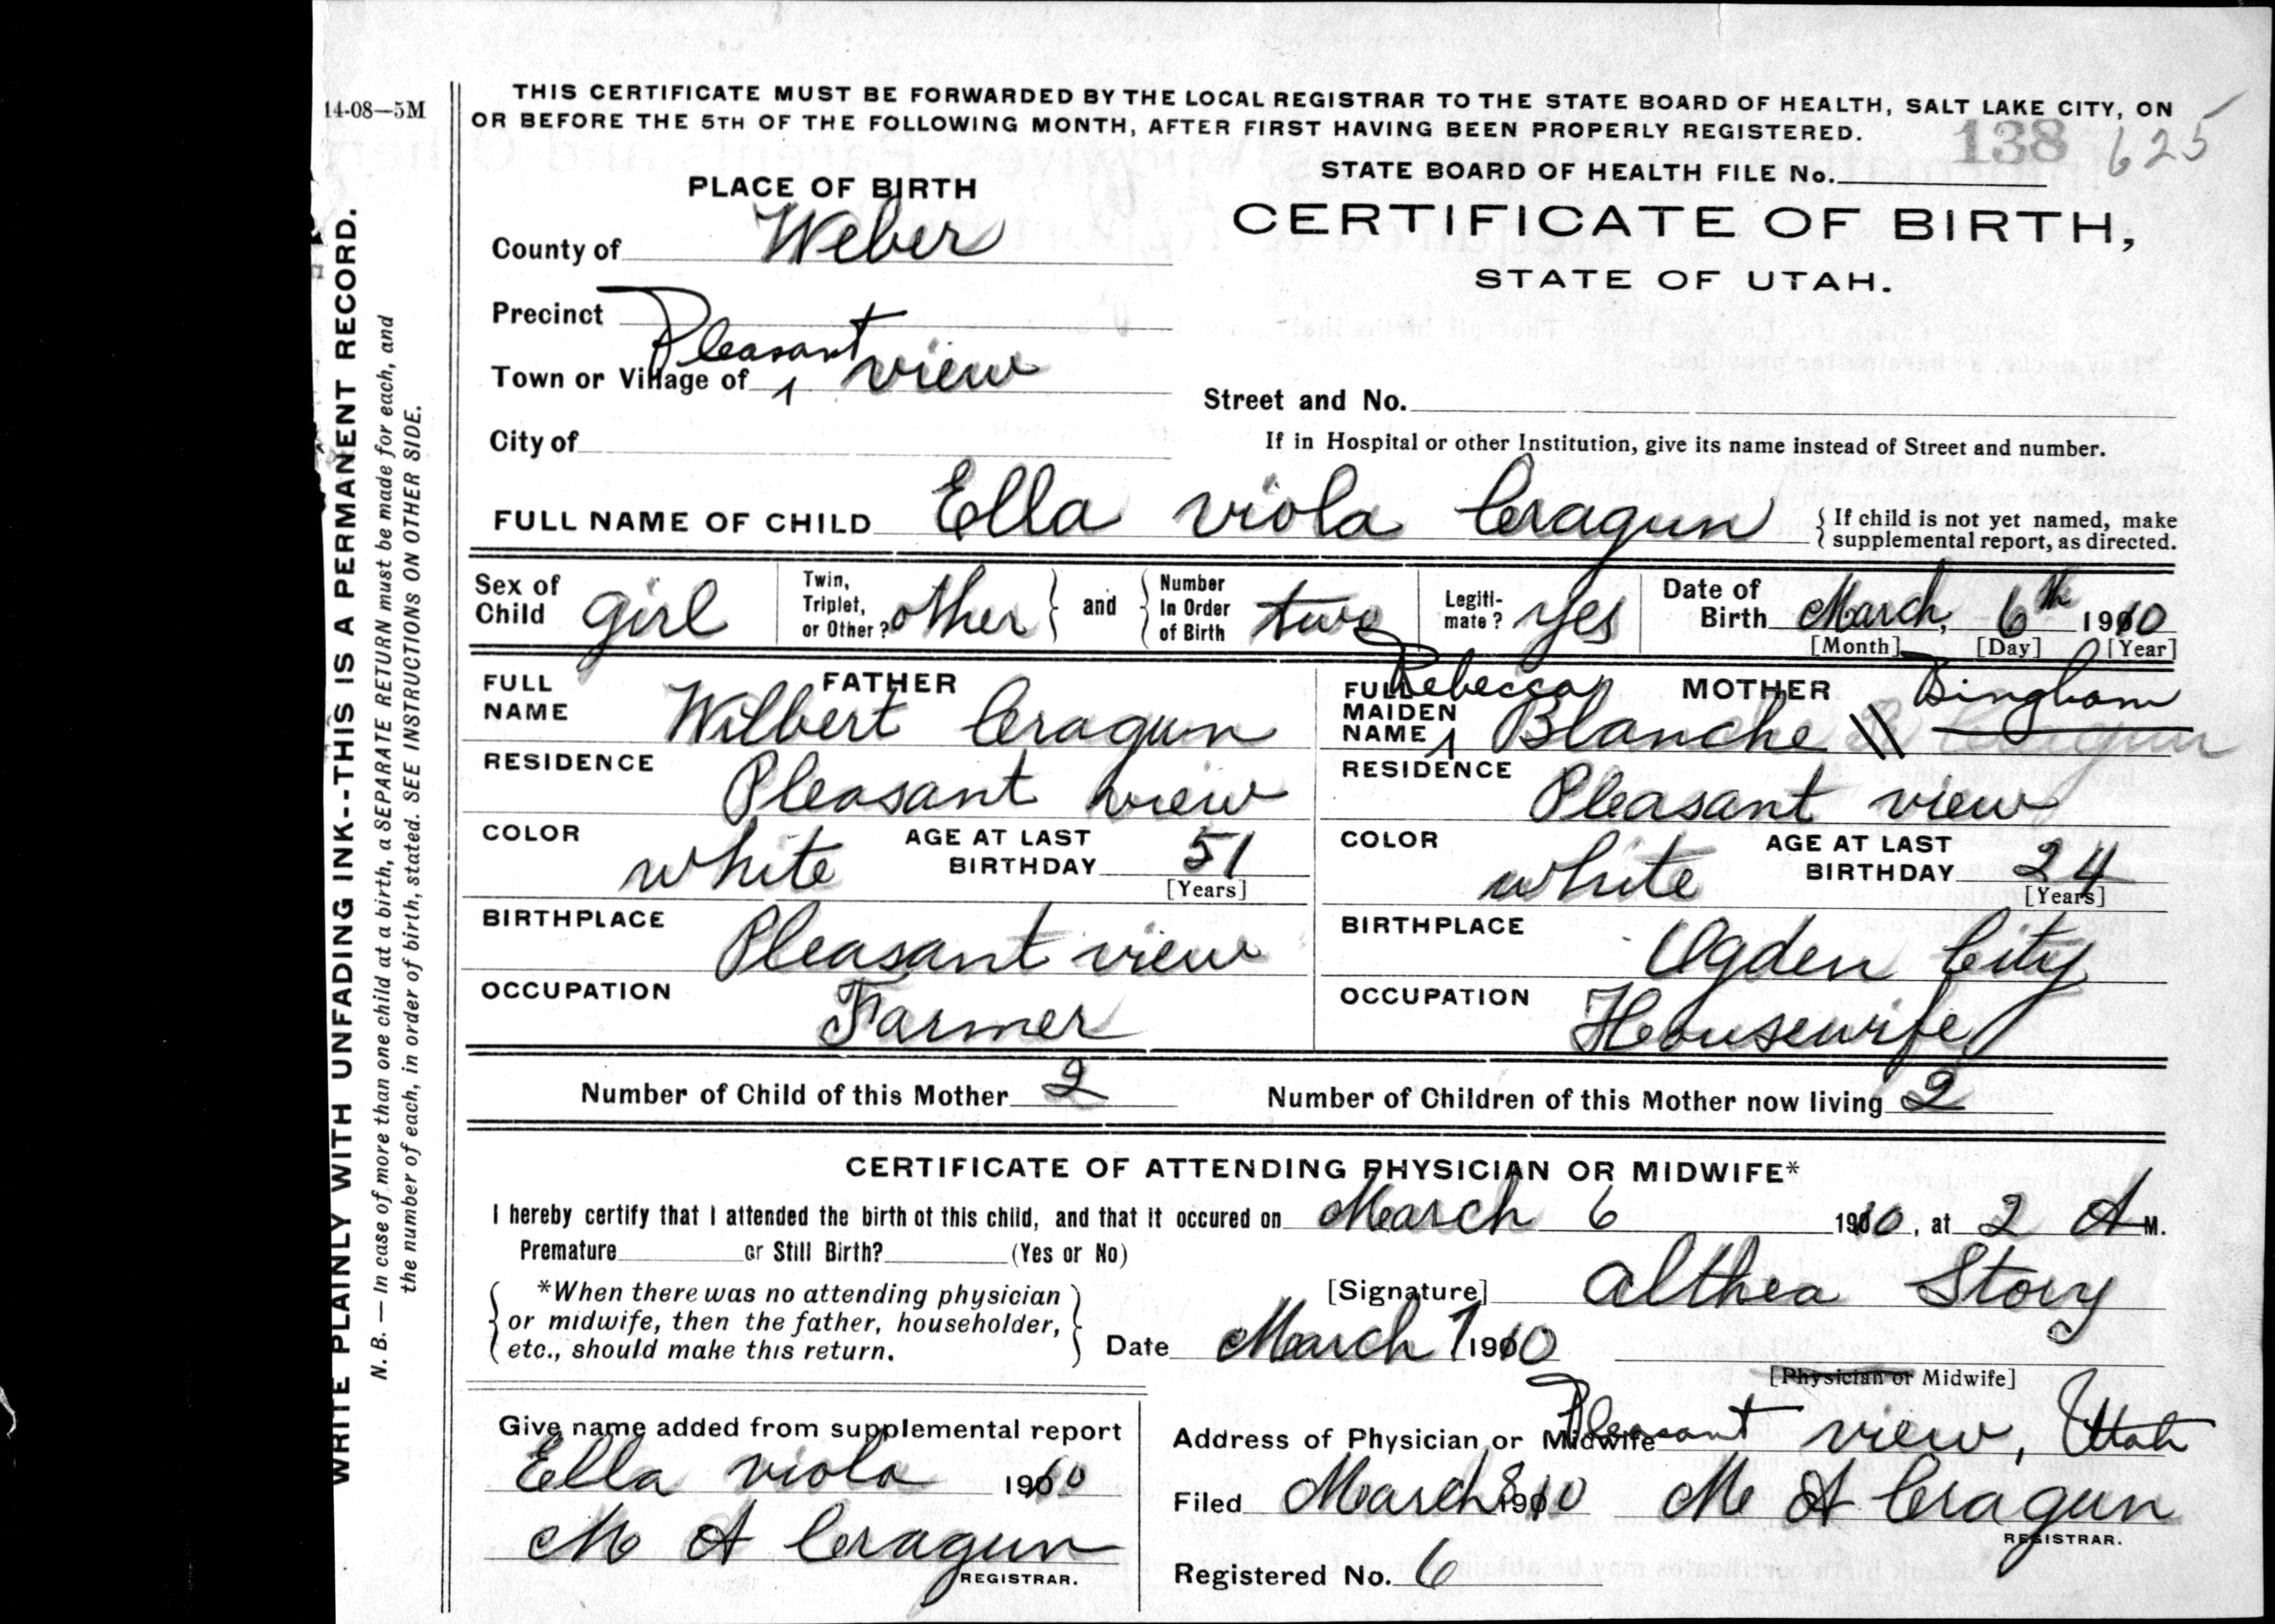 14-08—5M
THIS CERTIFICATE MUST BE FORWARDED BY THE LOCAL REGISTRAR TO THE STATE BOARD OF HEALTH, SALT LAKE CITY, ON
OR BEFORE THE 5TH OF THE FOLLOWING MONTH, AFTER FIRST HAVING BEEN PROPERLY REGISTERED.
138 625
STATE BOARD OF HEALTH FILE No.
CERTIFICATE OF BIRTH,
STATE OF UTAH.
PLACE OF BIRTH
County of Weber
Precinct
Town or Village of Pleasant view
City of
Street and No.
If in Hospital or other Institution, give its name instead of Street and number.
FULL NAME OF CHILD Ella viola Cragun
{ If child is not yet named, make
supplemental report, as directed.
Sex of Child girl
Twin, Triplet, or Other? other } and { Number In Order of Birth two
Legiti-mate? yes
Date of Birth March, 6th 1910
[Month] [Day] [Year]
FATHER
FULL NAME Wilbert Cragun
RESIDENCE Pleasant view
COLOR white AGE AT LAST BIRTHDAY 51
[Years]
BIRTHPLACE Pleasant view
OCCUPATION Farmer
MOTHER
FULL MAIDEN NAME Rebecca Blanche Bingham Cragun
RESIDENCE Pleasant view
COLOR white AGE AT LAST BIRTHDAY 24
[Years]
BIRTHPLACE Ogden City
OCCUPATION Housewife
Number of Child of this Mother 2 Number of Children of this Mother now living 2
CERTIFICATE OF ATTENDING PHYSICIAN OR MIDWIFE*
I hereby certify that I attended the birth of this child, and that it occured on March 6 1910, at 2 A M.
Premature or Still Birth? (Yes or No)
{ *When there was no attending physician
or midwife, then the father, householder,
etc., should make this return. }
[Signature] Althea Story
Date March 7 1910
[Physician or Midwife]
Give name added from supplemental report
Ella viola 1910
M A Cragun
REGISTRAR.
Address of Physician or Midwife Pleasant view, Utah
Filed March 8 1910 M A Cragun
REGISTRAR.
Registered No. 6
WRITE PLAINLY WITH UNFADING INK--THIS IS A PERMANENT RECORD.
N. B. — In case of more than one child at a birth, a SEPARATE RETURN must be made for each, and
the number of each, in order of birth, stated. SEE INSTRUCTIONS ON OTHER SIDE.